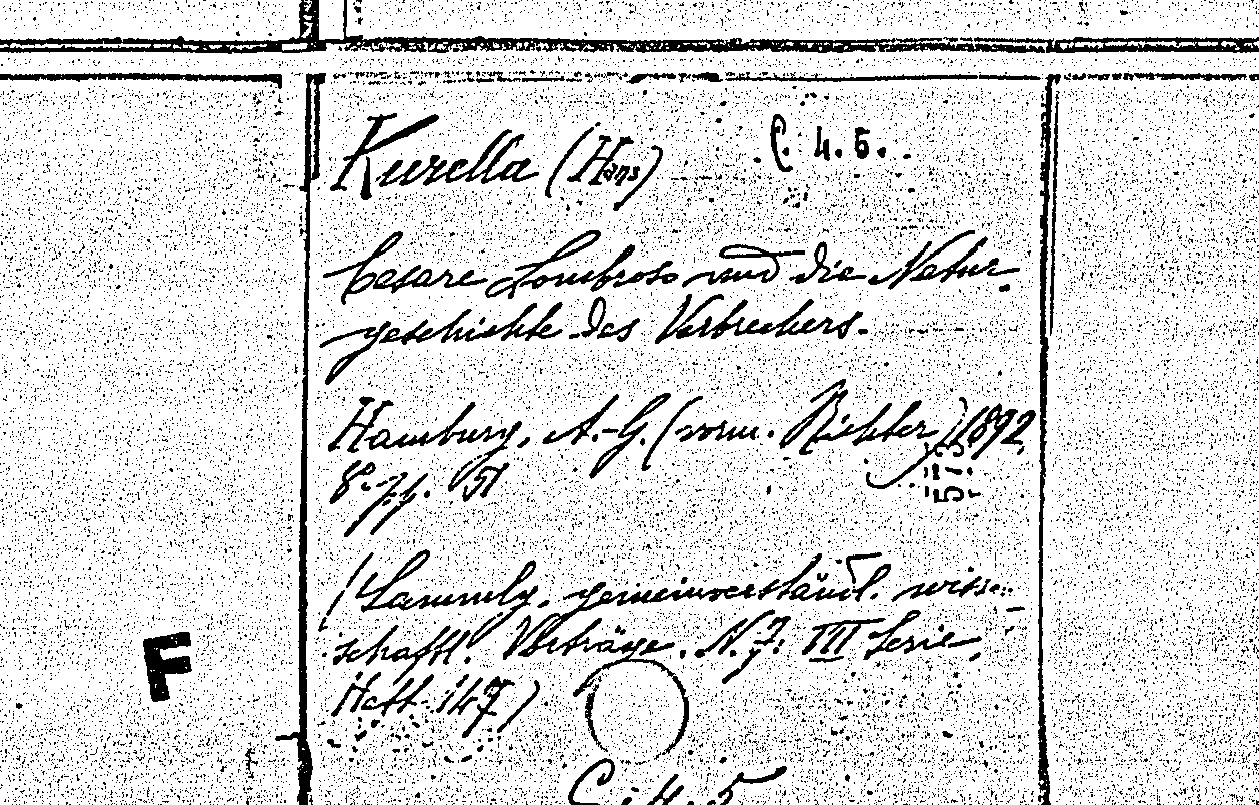 Kurella (Hans) C. 4. 5.
Cesare Lombroso und die Natur-
geschichte des Verbrechers.
Hamburg, A.-G. (vorm. Richter) 1892
8º. pp. 51
(Sammlg. gemeinverständl. wiss.
schaftl. Vorträge. N. F. VII Serie,
Heft 147)
F